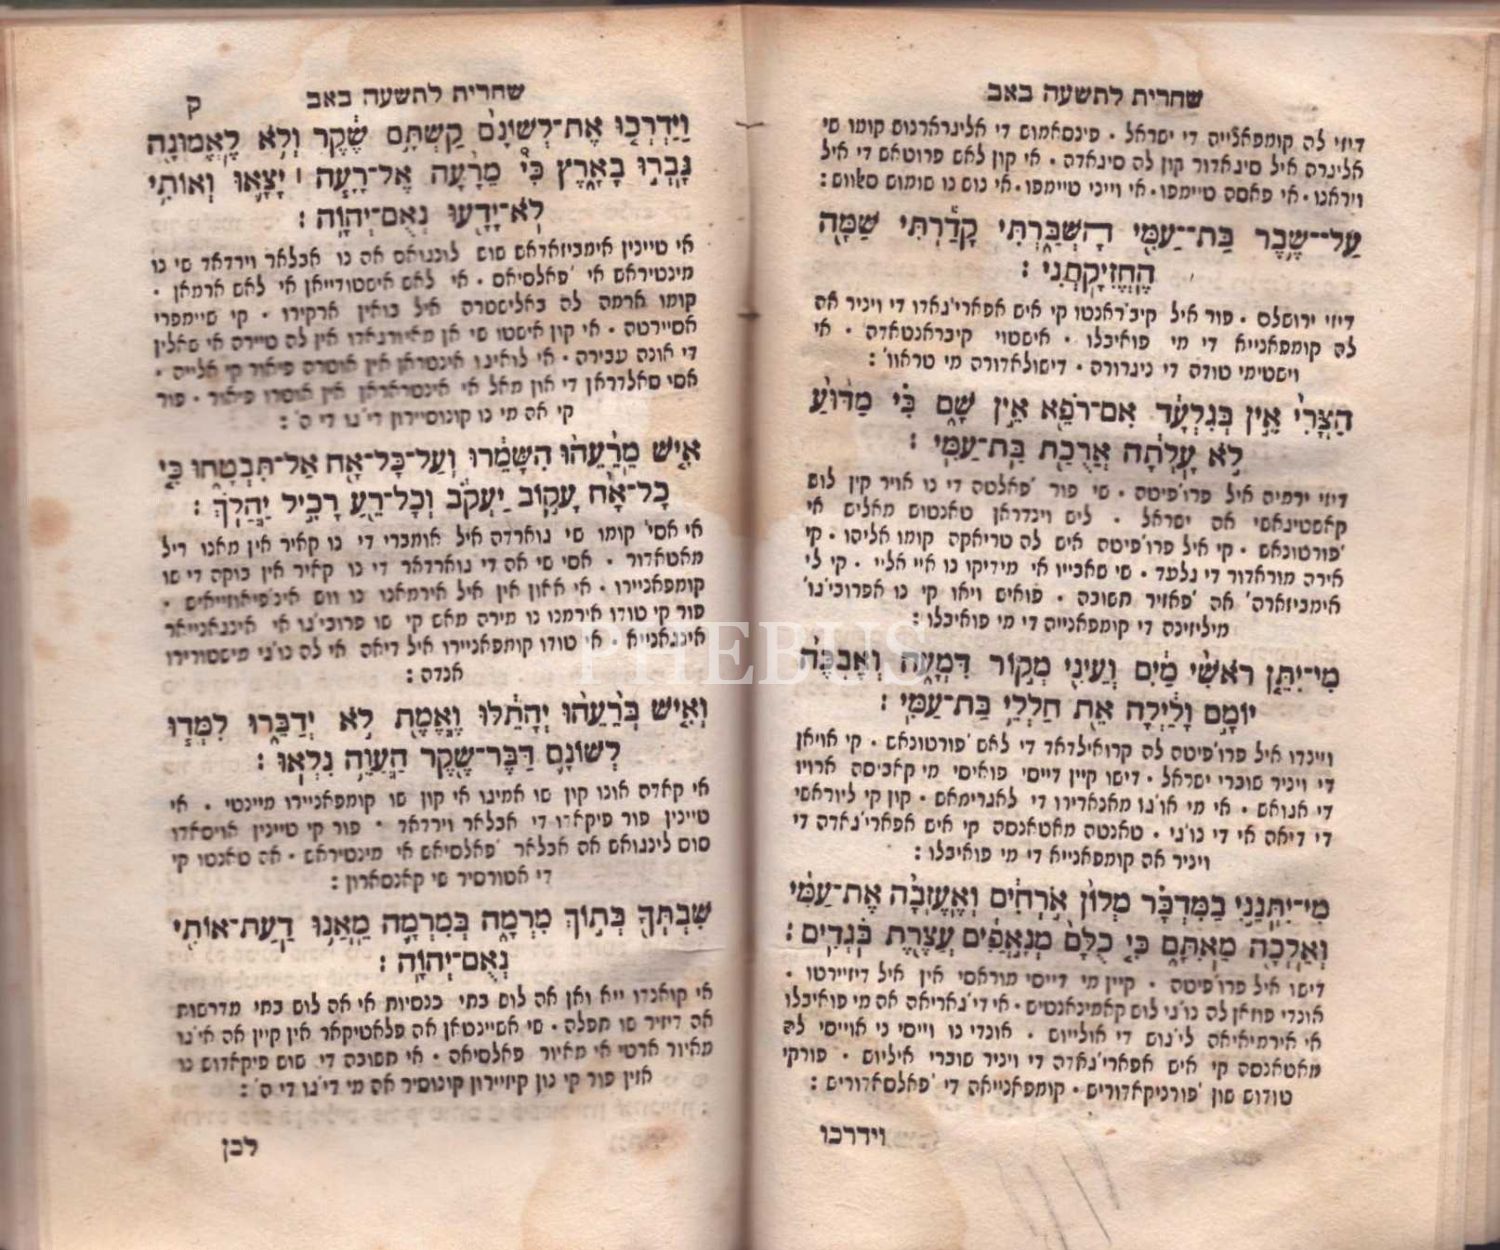 שחרית לתשעה באב
דיזי לה קומפאנייה די ישראל · פינסאמוס די אליגרארנוס קומו סי
אליגרה איל סיגאדור קון לה סיגאדה · אי קון לאס פרוטאס די איל
ויראנו · אי פאסה טיימפו · אי וייני טיימפו · אי נוס נו סומוס סאלוום :
עַל־שֶׁבֶר בַּת־עַמִּי הָשְׁבָּרְתִּי קָדַרְתִּי שַׁמָּה
הֶחֱזִיקָתְנִי :
דיזי ירושלם · פור איל קיב'ראנטו קי איס אפארי'גאדו די ויניר אה
לה קומפאנייא די מי פואיבלו · איסטוי קיבראנטאדה · אי
ויסטימי טודה די ניגרורה · דיסולאדורה מי טראוו' :
הַצֳרִי אֵין בְּגִלְעָד אִם־רֹפֵא אֵין שָׁם כִּי מַדּוּעַ
לֹא עָלְתָה אֲרֻכַת בַּת־עַמִּי :
דיזי ירמיה איל פרו'פיטה · סי פור 'פאלטה די נו אויר קין לוס
קאסטיגאסי אה ישראל · ליס וינדראן טאנטוס מאליס אי
'פורטונאס · קי איל פרו'פיטה איס לה טריאקה קומו אליהו · קי
אירה מוראדור די גלעד · סי סאבייו אי מידיקו נו איי אליי · קי לי
אימביזארה' אה 'פאזיר תשובה · פואיס ויאו קי נו אפרובי'גו'
מיליזינה די קומפאנייה די מי פואיבלו :
מִי־יִתֵּן רֹאשִׁי מַיִם וְעֵינִי מְקוֹר דִּמְעָה וְאֶבְכֶּה
יוֹמָם וָלַיְלָה אֵת חַלְלֵי בַּת־עַמִּי :
ויינדו איל פרו'פיטה לה קרואילדאד די לאס 'פורטונאס · קי אויאן
די ויניר סוברי ישראל · דיסו קיין דייסי פואיסי מי קאביסה ארויו
די אגואס · אי מי או'גו מאנאדירו די לאגרימאס · קון קי ליוראסי
די דיאה אי די נו'גי · טאנטה מאטאנסה קי איס אפארי'גאדה די
ויניר אה קומפאנייא די מי פואיבלו :
מִי־יִתְּנֵנִי בַמִּדְבָּר מְלוֹן אֹרְחִים וְאֶעֶזְבָה אֶת־עַמִּי
וְאֵלְכָה מֵאִתָּם כִּי כֻלָּם מְנָאֲפִים עֲצֶרֶת בֹּגְדִים :
דיסו איל פרו'פיטה · קיין מי דייסי מוראסי אין איל דיזיירטו ·
אונדי פוזאן לה נו'גי לוס קאמינאנטיס · אי די'גאריאה אה מי פואיבלו
אי אירמיאיאה לי'גוס די אולייוס · אונדי נו וייסי ני אוייסי לה
מאטאנסה קי איס אפארי'גאדה די ויניר סוברי איליוס · פורקי
טודוס סון 'פורניקאדוריס · קומפאנייאה די 'פאלסאדוריס :
וידרכו
שחרית לתשעה באב ק
וַיַּדְרְכוּ אֶת־לְשׁוֹנָם קַשְׁתָּם שֶׁקֶר וְלֹא לֶאֱמוּנָה
גָּבְרוּ בָאָרֶץ כִּי מֵרָעָה אֶל־רָעָה ׀ יָצָאוּ וְאוֹתִי
לֹא־יָדָעוּ נְאֻם־יְהוָה :
אי טייניין אימביזאדאס סוס לונגואס אה נו אבלאר וירדאד סי נו
מינטיראס אי 'פאלסיאס · אי לאס איסטודייאן אי לאס ארמאן ·
קומו ארמה לה באליסטרה איל בואין ארקירו · קי סיימפרי
אסיירטה · אי קון איסטו סי אן מאיורגאדו אין לה טיירה אי סאלין
די אונה עבירה · אי לואיגו אינטראן אין אוטרה פיאור קי אלייה ·
אסי סאלדראן די און מאל אי אינטראראן אין אוטרו פיאור · פור
קי אה מי נו קונוסיירון די'גו די ה' :
אִישׁ מֵרֵעֵהוּ הִשָּׁמֵרוּ וְעַל־כָּל־אָח אַל־תִּבְטָחוּ כִּי
כָל־אָח עָקוֹב יַעְקֹב וְכָל־רֵעַ רָכִיל יַהֲלֹךְ :
אי אסי' קומו סי גוארדה איל אומברי די נו קאיר אין מאנו דיל
מאטאדור · אסי סי אה די גוארדאר די נו קאיר אין בוקה די סו
קומפאניירו · אי אאון אין איל אירמאנו נו ווס אינ'פיאוזייאיס ·
פור קי טודו אירמנו נו מירה מאס קי סו פרובי'גו אי אינגאנייאר
אינגאנייא · אי טודו קומפאניירו איל דיאה אי לה נו'גי מיסטורירו
אנדה :
וְאִישׁ בְּרֵעֵהוּ יְהָתֵלּוּ וֶאֱמֶת לֹא יְדַבֵּרוּ לִמְּדוּ
לְשׁוֹנָם דַּבֶּר־שֶׁקֶר הַעֲוֵה נִלְאוּ :
אי קאדה אונו קון סו אמיגו אי קון סו קומפאניירו מיינטי · אי
טייניין פור פיקאדו די אבלאר וירדאד · פור קי טייניין אויזאדו
סוס לינגואס אה אבלאר 'פאלסיאס אי מינטיראס · אה טאנטו קי
די אטורסיר סי קאנסארון :
שִׁבְתְּךָ בְּתוֹךְ מִרְמָה בְּמִרְמָה מֵאֲנוּ דַעַת־אוֹתִי
נְאֻם־יְהוָה :
אי קואנדו ייא ואן אה לוס בתי כנסיות אי אה לוס בתי מדרשות
אה דיזיר סו תפלה · סי אסיינטאן אה פלאטיקאר אין קיין אה אי'גו
מאיור ארטי אי מאיור פאלסיאה · אי תשובה די סוס פיקאדוס נו
אזין פור קי נון קיזיירון קונוסיר אה מי די'גו די ה' :
לכן